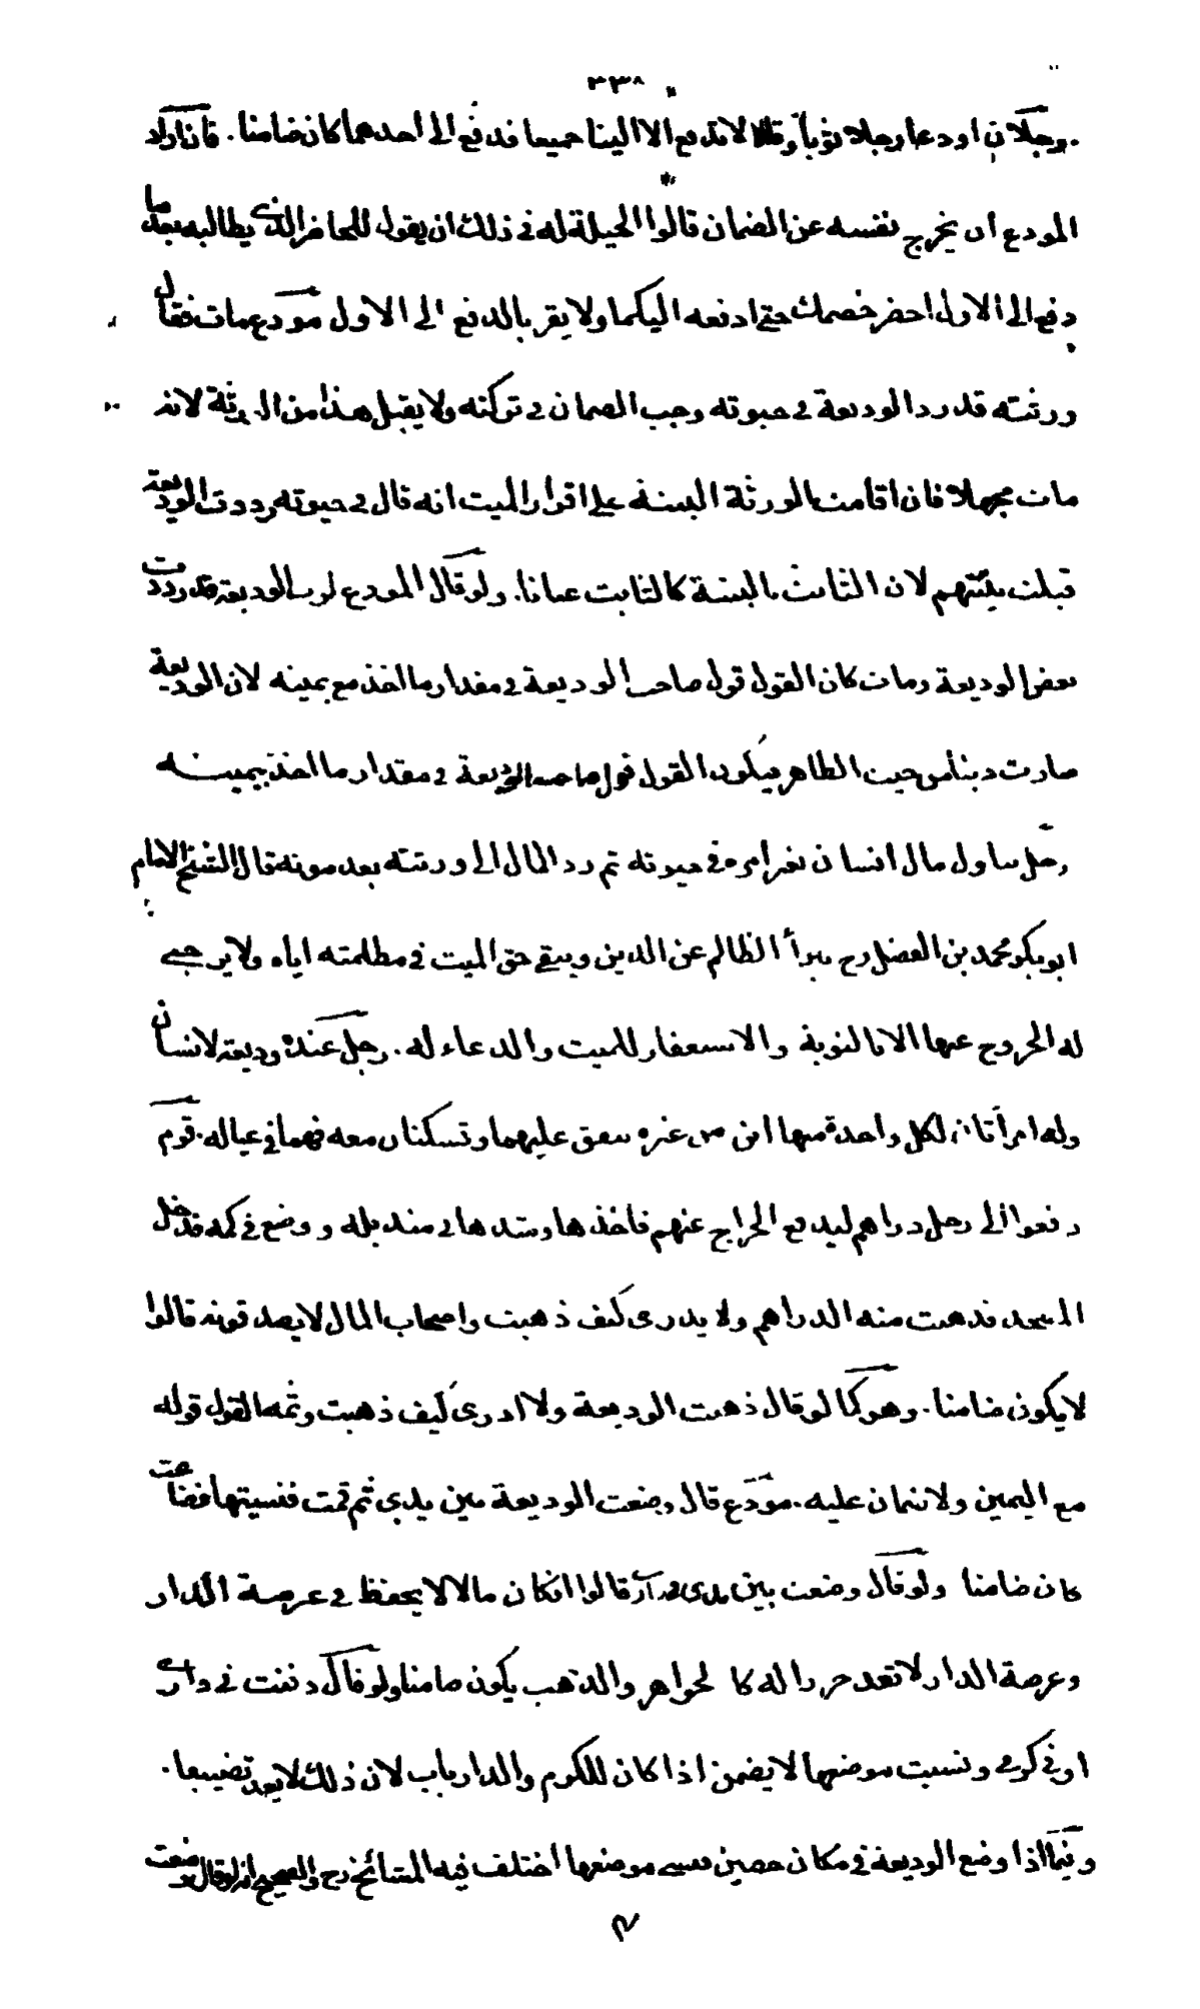 ٣٣٨
رجلان اودعا رجلا ثوبا وقالا لا تدفع الا الينا جميعا فدفع الى احدهما كان ضامنا. فان اراد
المودع ان يخرج نفسه عن الضمان قالوا الحيلة له في ذلك ان يقول للحاضر الذي يطالبه بعد ما
دفع الى الاول احضر خصمك حتى ادفعه اليكما ولا يقر بالدفع الى الاول مودع مات فقال
ورثته قد رد الوديعة في حيوته وجب الضمان في تركته ولا يقبل هذا من الورثة لانه
مات مجهلا فان اقامت الورثة البينة على اقرار الميت انه قال في حيوته رددت الوديعة
قبلت بينتهم لان الثابت بالبينة كالثابت عيانا. ولو قال المودع لرب الوديعة قد رددت
بعض الوديعة ومات كان القول قول صاحب الوديعة في مقدار ما اخذ مع يمينه لان الوديعة
صارت دينا من حيث الظاهر فيكون القول قول صاحب الوديعة في مقدار ما اخذ بيمينه
رجل تناول مال انسان بغير امره في حيوته ثم رد المال الى ورثته بعد موته قال الشيخ الامام
ابو بكر محمد بن الفضل رح يبرأ الظالم عن الدين ويبقى حق الميت في مظلمته اياه ولا يرجى
له الخروج عنها الا بالتوبة والاستغفار للميت والدعاء له. رجل عنده وديعة لانسان
وله امرأتان لكل واحدة منها ابن من غيره ينفق عليهما وتسكنان معه فهما في عياله. قوم
دفعوا الى رجل دراهم ليدفع الخراج عنهم فاخذها وشدها في منديله ووضع في كمه فدخل
المسجد فذهبت منه الدراهم ولا يدرى كيف ذهبت واصحاب المال لا يصدقونه قالوا
لا يكون ضامنا. وهو كما لو قال ذهبت الوديعة ولا ادرى كيف ذهبت وثمه القول قوله
مع اليمين ولا ضمان عليه. مودع قال وضعت الوديعة بين يدي ثم قمت فنسيتها فضاعت
كان ضامنا ولو قال وضعت بين يدي في داري قالوا ان كان مالا لا يحفظ في عرصة الدار
وعرصة الدار لا تعد حرزا له كالجواهر والذهب يكون ضامنا ولو قال دفنت في داري
او في كرمي ونسيت موضعها لا يضمن اذا كان للكرم والدار باب لان ذلك لا يعد تضييعا.
وفيما اذا وضع الوديعة في مكان حصين فنسي موضعها اختلف فيه المشائخ رح والصحيح انه لو قال وضعت